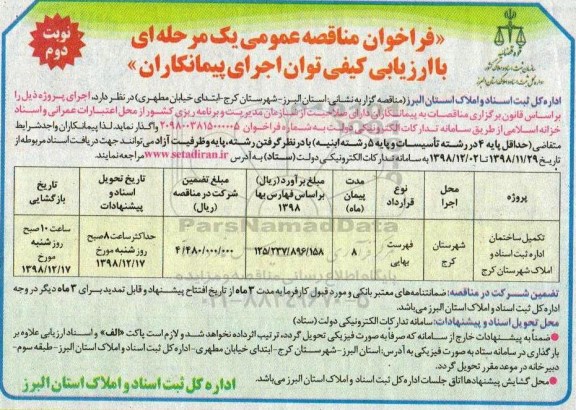 نوبت دوم
«فراخوان مناقصه عمومی یک مرحله ای
با ارزیابی کیفی توان اجرای پیمانکاران»
قوه قضائیه
اداره کل ثبت اسناد و املاک استان البرز
اداره کل ثبت اسناد و املاک استان البرز (مناقصه گزار به نشانی: استان البرز-شهرستان کرج-ابتدای خیابان مطهری) در نظر دارد، اجرای پروژه ذیل را
بر اساس قانون برگزاری مناقصات به پیمانکاران دارای صلاحیت از سازمان مدیریت و برنامه ریزی کشور از محل اعتبارات عمرانی و اسناد
خزانه اسلامی از طریق سامانه تدارکات الکترونیکی دولت به شماره فراخوان ۲۰۹۸۰۰۳۸۱۵۰۰۰۰۰۵ واگذار نماید. لذا پیمانکاران واجد شرایط
متقاضی (حداقل پایه ۴ در رشته تأسیسات و پایه ۵ رشته ابنیه) با در نظر گرفتن رشته، پایه و ظرفیت آزاد می توانند جهت دریافت اسناد مربوطه از
تاریخ ۱۳۹۸/۱۱/۲۹ تا ۱۳۹۸/۱۲/۰۲ به سامانه تدارکات الکترونیکی دولت (ستاد) به آدرس www.setadiran.ir مراجعه نمایند.
پروژه | محل اجرا | نوع قرارداد | مدت پیمان (ماه) | مبلغ برآورد (ریال) بر اساس فهارس بها ۱۳۹۸ | مبلغ تضمین شرکت در مناقصه (ریال) | تاریخ تحویل اسناد و پیشنهادات | تاریخ بازگشایی
تکمیل ساختمان اداره ثبت اسناد و املاک شهرستان کرج | شهرستان کرج | فهرست بهایی | ۸ | ۱۲۵/۲۳۷/۸۹۶/۱۵۸ | ۴/۳۸۰/۰۰۰/۰۰۰ | حداکثر ساعت ۸ صبح روز شنبه مورخ ۱۳۹۸/۱۲/۱۷ | ساعت ۱۰ صبح روز شنبه مورخ ۱۳۹۸/۱۲/۱۷
تضمین شرکت در مناقصه: ضمانتنامه های معتبر بانکی و مورد قبول کارفرما به مدت ۳ ماه از تاریخ افتتاح پیشنهاد و قابل تمدید برای ۳ ماه دیگر در وجه
اداره کل ثبت اسناد و املاک استان البرز می باشد.
محل تحویل اسناد و پیشنهادات: سامانه تدارکات الکترونیکی دولت (ستاد)
ضمناً به پیشنهادات خارج از سامانه که صرفاً به صورت فیزیکی تحویل گردد، ترتیب اثر داده نخواهد شد و لازم است پاکت «الف» و اسناد ارزیابی علاوه بر
بارگذاری در سامانه ستاد به صورت فیزیکی به آدرس: استان البرز-شهرستان کرج-ابتدای خیابان مطهری-اداره کل ثبت اسناد و املاک استان البرز-طبقه سوم-
دبیرخانه در موعد مقرر تحویل گردد.
محل گشایش پیشنهادها اتاق جلسات اداره کل ثبت اسناد و املاک استان البرز می باشد.
اداره کل ثبت اسناد و املاک استان البرز
ParsNamadData